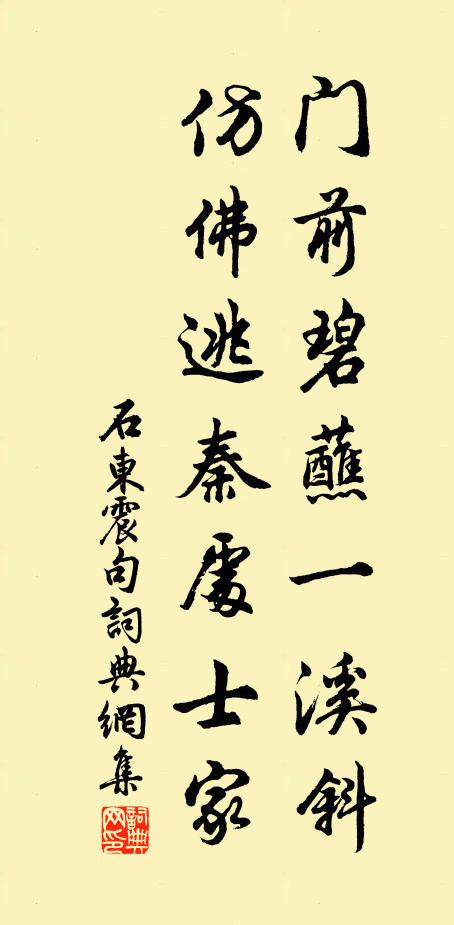 门前碧蘸一溪斜
仿佛逃秦處士家
石東震句詞典網集
詞典网印